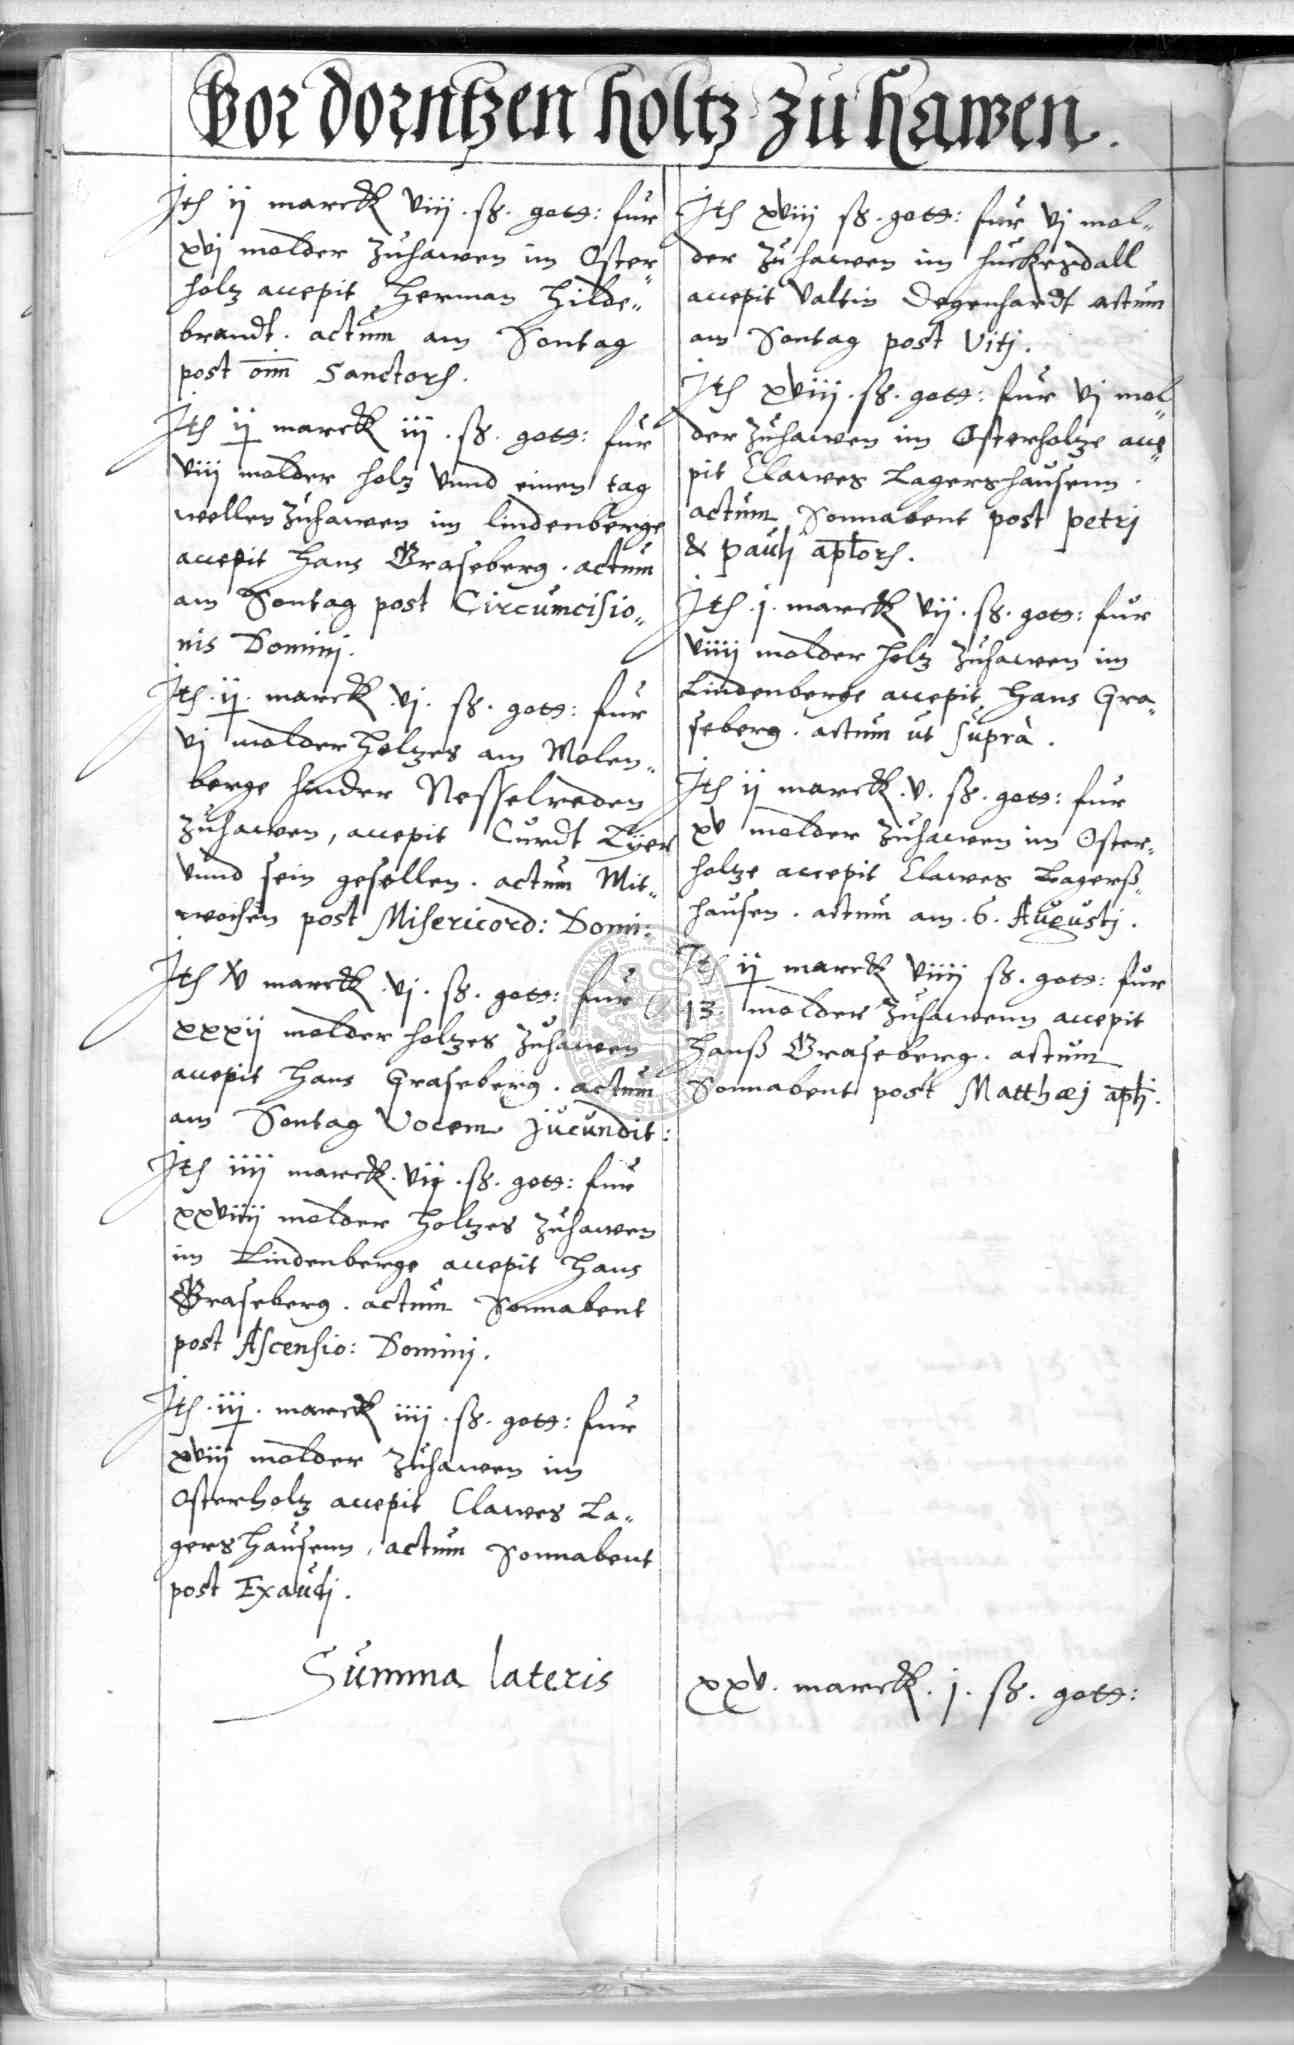 Vor dorntzen holtz zu hawen.
Itꝫ ij marck viij. ß. gott: fur
xvj molder zuhawen im Oster„
holz accepit Herman Hilde„
brandt. actum am Sontag
post oīm Sanctorꝫ.
Itꝫ ij marck iij. ß. gott: fur
viij molder holz vnnd einen tag
wellen zuhawen im lindenberge
accepit Hans Graseberg. actum
am Sontag post Circumcisio„
nis Dominj.
Itꝫ. ij. marck. vj. ß. gott: fur
vj molder holtzes am Molen„
berge hinder Nesselreden
zuhawen, accepit Curdt
vnnd sein gesellen. actum Mit„
wochen post Misericord: Domi:
Itꝫ v marck. vj. ß. gott: fur
xxxij molder holtzes zuhawen
accepit Hans Graseberg. actum
am Sontag Vocem jucundit:
Itꝫ iiij marck. vij. ß. gott: fur
xxviiij molder holtzes zuhawen
im Lindenberge accepit Hans
Graseberg. actum Sonnabent
post Ascensio: Dominj.
Itꝫ. iij. marck iiij. ß. gott: fur
xviij molder zuhawen im
Osterholtz accepit Clawes La„
gershausenn, actum Sonnabent
post Exaudj.
Itꝫ xviij ß. gott: fur vj mol„
der zu hawen im huckerdall
accepit Valtin Degenhardt actum
am Sontag post Vitj.
Itꝫ xviij. ß. gott: fur vj mol„
der zuhawen im Osterholtze acce„
pit Clawes Lagershausenn.
actum Sonnabent post petrj
& paulj aptorꝫ.
Itꝫ. j. marck vij. ß. gott: fur
viiij molder holz zuhawen im
Lindenberge accepit Hans Gra„
seberg. actum ut supra.
Itꝫ ij marck. v. ß. gott: fur
xv molder zuhawen im Oster„
holtze accepit Clawes Lagerß„
hausen. actum am. 6. Augustj.
Itꝫ ij marck viiij ß. gott: fur
13. molder zuhawenn accepit
Hanß Graseberg. actum
Sonnabent post Matthæj aptj.
Summa lateris xxv. marck. j. ß. gott: